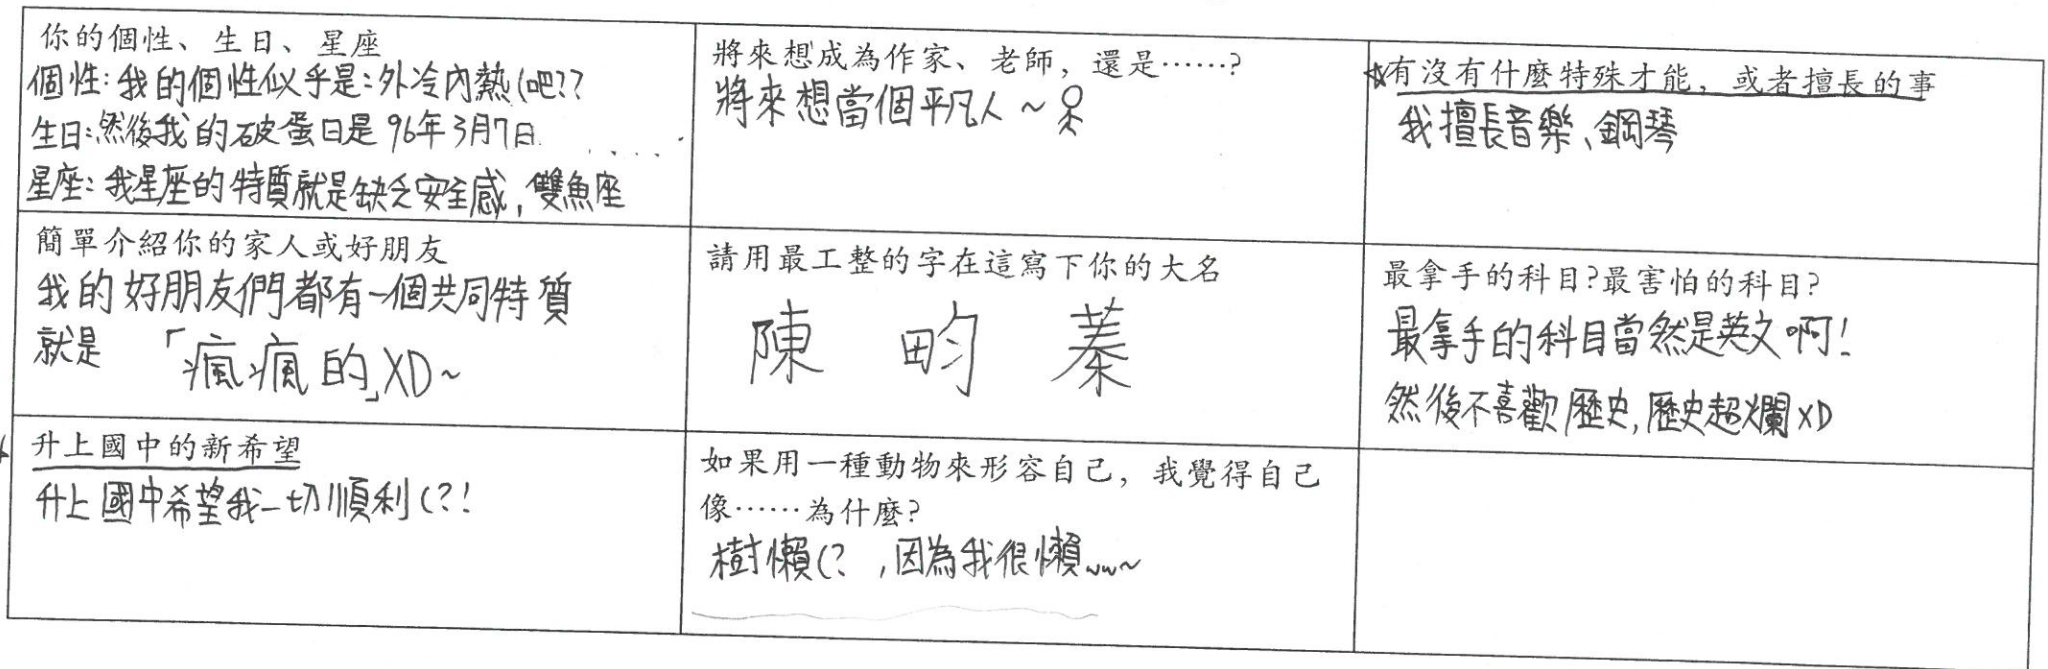 你的個性、生日、星座
個性:我的個性似乎是:外冷內熱(吧??
生日:然後我的破蛋日是96年3月7日.....
星座:我星座的特質就是缺乏安全感,雙魚座
將來想成為作家、老師，還是……?
將來想當個平凡人~
☆有沒有什麼特殊才能，或者擅長的事
我擅長音樂、鋼琴
簡單介紹你的家人或好朋友
我的好朋友們都有一個共同特質
就是「瘋瘋的」XD~
請用最工整的字在這寫下你的大名
陳 畇 蓁
最拿手的科目?最害怕的科目?
最拿手的科目當然是英文啊!
然後不喜歡歷史,歷史超爛XD
升上國中的新希望
升上國中希望我一切順利(?!
如果用一種動物來形容自己，我覺得自己
像……為什麼?
樹懶(?,因為我很懶~w~